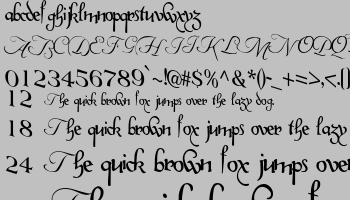 abcdefghijklmnopqrstuvwxyz
ABCDEFGHIJKLMNOPQ
0123456789`~!@#$%^&*()-_+=>,<.()
12 The quick brown fox jumps over the lazy dog.
18 The quick brown fox jumps over the lazy
24 The quick brown fox jumps over